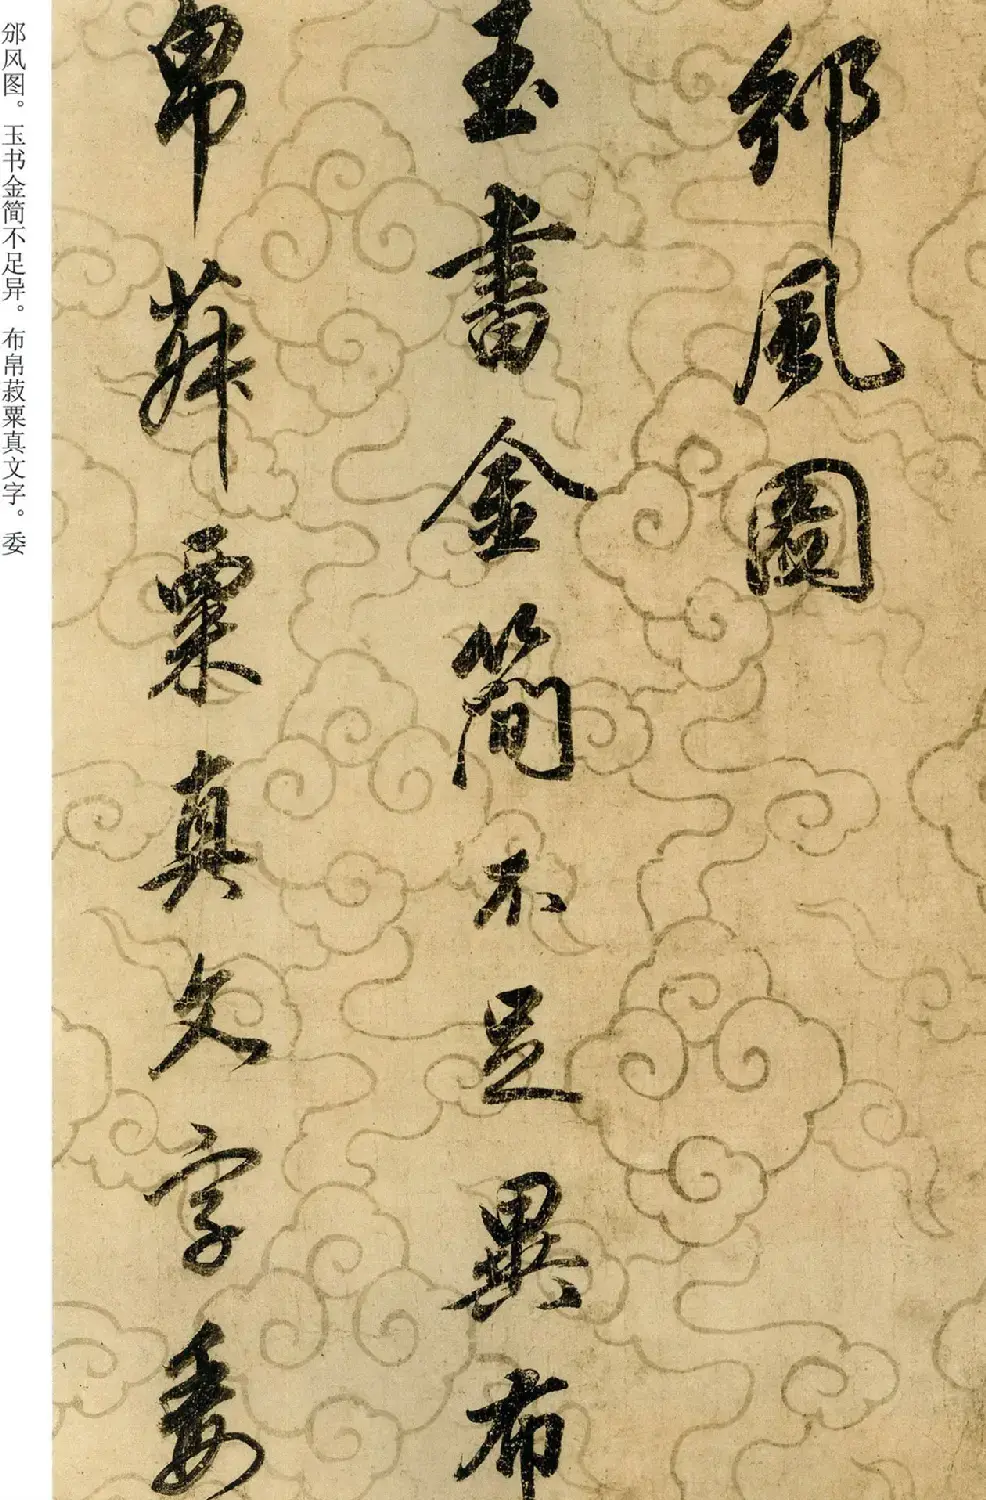 邠風圖
玉書金簡不足異布
帛菽粟真文字委
邠风图。玉书金简不足异。布帛菽粟真文字。委